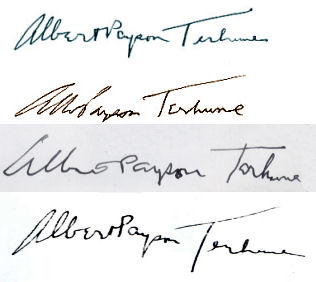 Albert Payson Terhune
Albert Payson Terhune
Albert Payson Terhune
Albert Payson Terhune